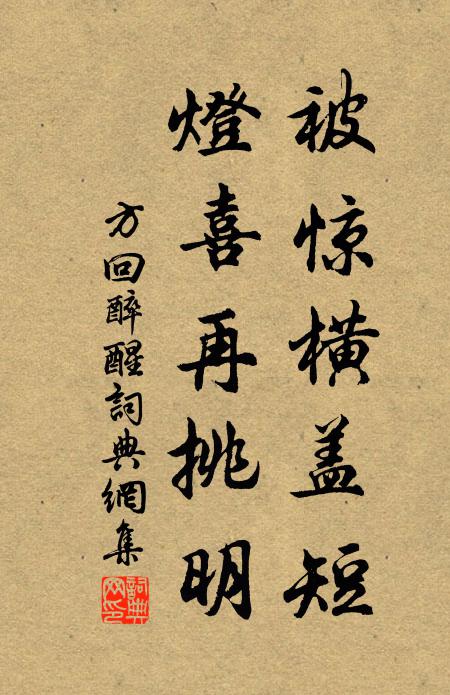 被惊横盖短
燈喜再挑明
方回醉醒詞典網集
詞典
网印